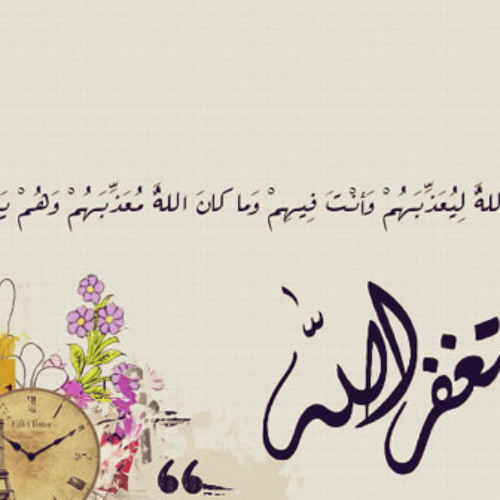 لله لِيُعَذِّبَهُمْ وَأَنْتَ فِيهِمْ وَما كانَ اللهُ مُعَذِّبَهُمْ وَهُمْ يَ
تغفر الله
Eiffel Tower
“